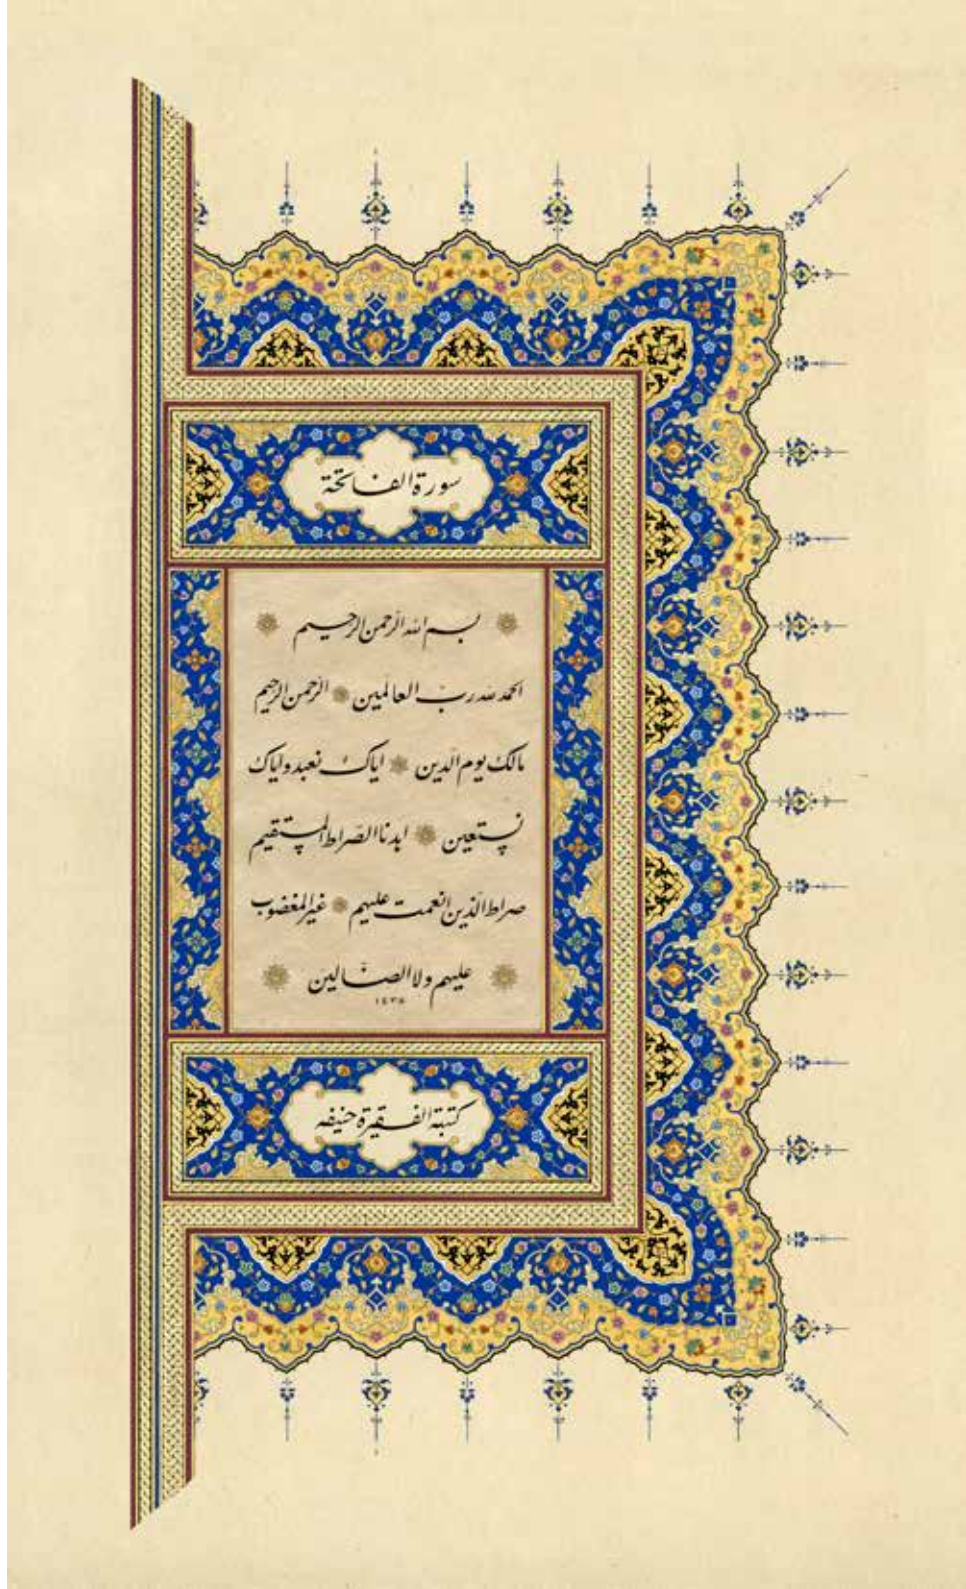 سورة الفاتحة
بسم الله الرحمن الرحيم
الحمد لله رب العالمين الرحمن الرحيم
مالك يوم الدّين اياك نعبد واياك
نستعين اهدنا الصّراط المستقيم
صراط الذين انعمت عليهم غير المغضوب
عليهم ولا الضالين
١٤٣٨
كتبته الفقيرة حنيفه